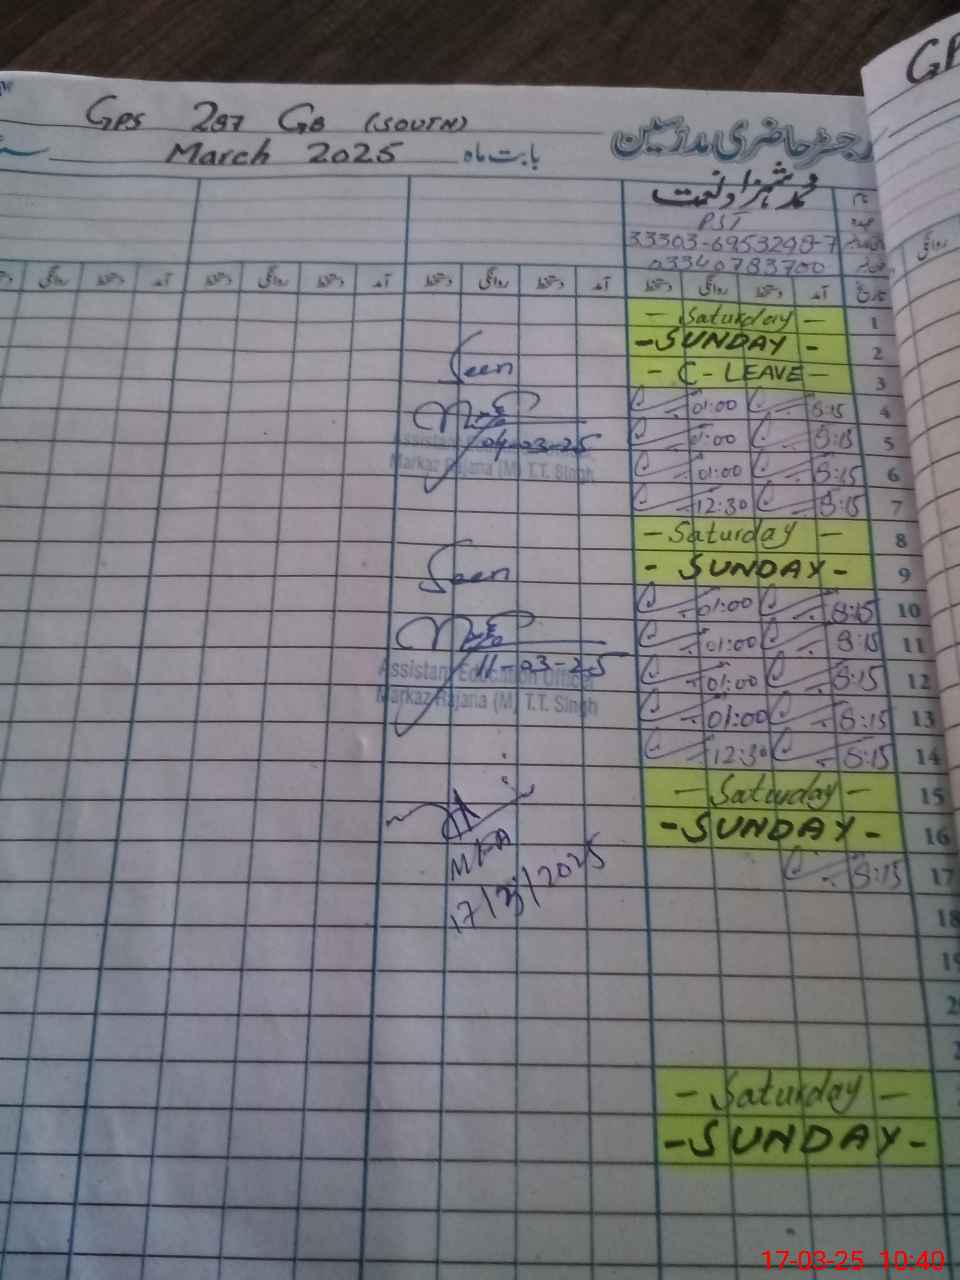 GPS 297 GB (SOUTH)
رجسٹر حاضری مدرسین
March 2025 بابت ماہ
محمد شہزاد نعمت
PST
33303-6953298-7
03340783700
- Saturday - 1
- SUNDAY - 2
Seen
- C-LEAVE - 3
01:00 8:15 4
04-03-25
01:00 8:15 5
Markaz Rajana (M) T.T. Singh
01:00 8:15 6
12:30 8:15 7
- Saturday - 8
Seen
- SUNDAY - 9
01:00 8:15 10
01:00 8:15 11
11-03-25
Assistant Education Officer
01:00 8:15 12
Markaz Rajana (M) T.T. Singh
01:00 8:15 13
12:30 8:15 14
- Saturday - 15
- SUNDAY - 16
MEA
8:15 17
17/3/2025
18
- Saturday -
- SUNDAY -
17-03-25 10:40